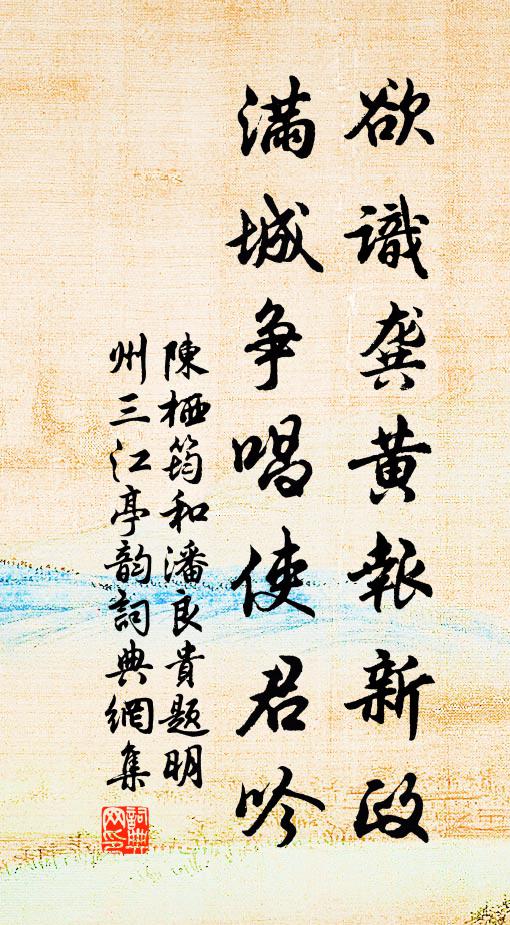 欲識龔黄報新政
滿城争唱使君吟
陳栖筠和潘良貴題明
州三江亭韵詞典網集